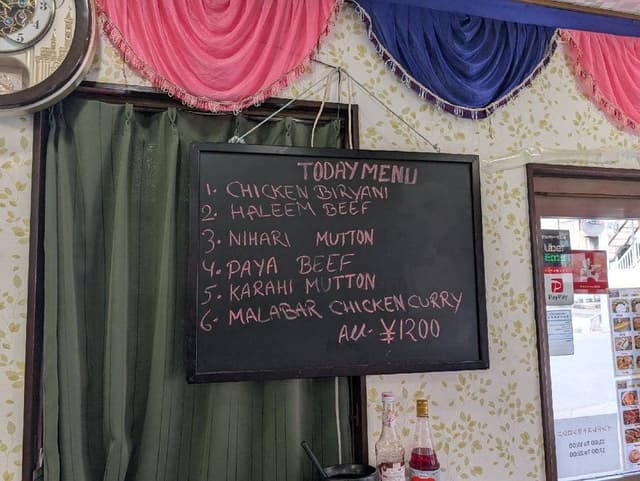 TODAY MENU
1. CHICKEN BIRYANI
2. HALEEM BEEF
3. NIHARI MUTTON
4. PAYA BEEF
5. KARAHI MUTTON
6. MALABAR CHICKEN CURRY
All. ¥1200
Uber
Eats
PayPay